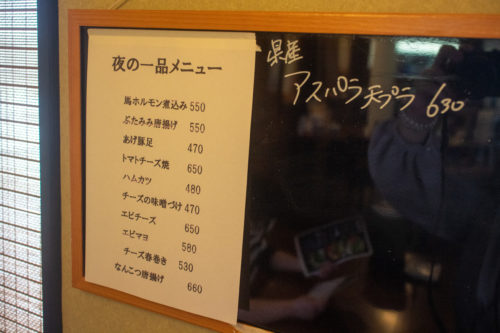 夜の一品メニュー
馬ホルモン煮込み 550
ぶたみみ唐揚げ 550
あげ豚足 470
トマトチーズ焼 650
ハムカツ 480
チーズの味噌づけ 470
エビチーズ 650
エビマヨ 580
チーズ春巻き 530
なんこつ唐揚げ 660
県産
アスパラ天プラ 630